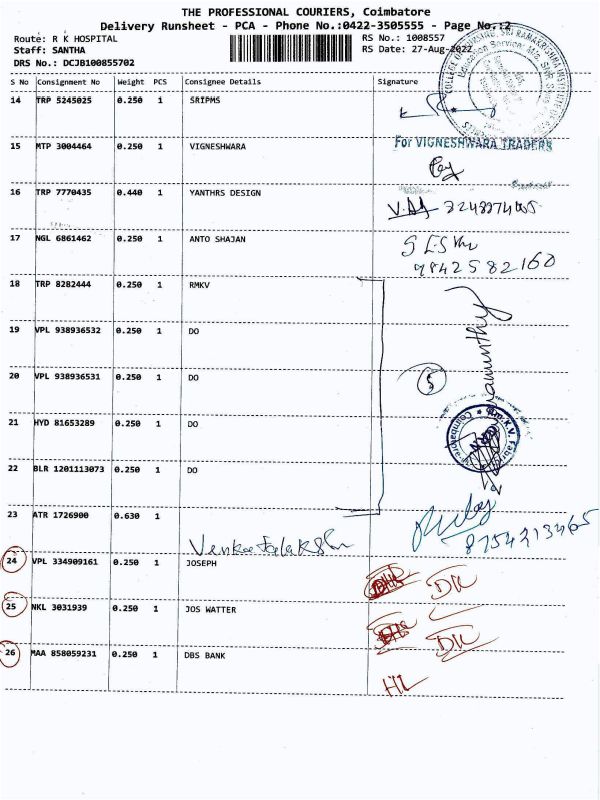 THE PROFESSIONAL COURIERS, Coimbatore
Delivery Runsheet - PCA - Phone No.:0422-3505555 - Page No.:2
Route: R K HOSPITAL RS No.: 1008557
Staff: SANTHA RS Date: 27-Aug-2022
DRS No.: DCJB100855702
S No Consignment No Weight PCS Consignee Details Signature
14 TRP 5245025 0.250 1 SRIPMS
15 MTP 3004464 0.250 1 VIGNESHWARA For VIGNESHWARA TRADERS
16 TRP 7770435 0.440 1 YANTHRS DESIGN
17 NGL 6861462 0.250 1 ANTO SHAJAN
9842582160
18 TRP 8282444 0.250 1 RMKV
19 VPL 938936532 0.250 1 DO
20 VPL 938936531 0.250 1 DO
5
21 HYD 81653289 0.250 1 DO
22 BLR 1201113073 0.250 1 DO
23 ATR 1726900 0.630 1
8754213465
24 VPL 334909161 0.250 1 JOSEPH DK
25 NKL 3031939 0.250 1 JOS WATTER DK
26 MAA 858059231 0.250 1 DBS BANK HL